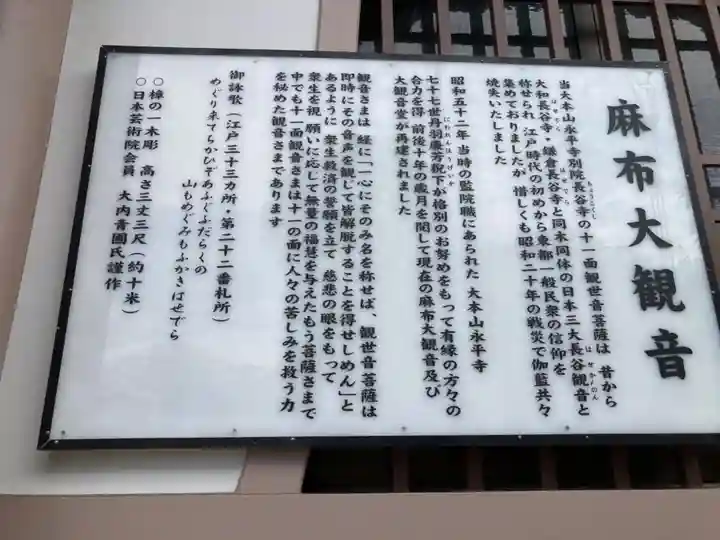 麻布大観音
当大本山永平寺別院長谷寺の十一面観世音菩薩は 昔から
大和長谷寺・鎌倉長谷寺と同木同体の日本三大長谷観音と
称せられ 江戸時代の初めから東都一般民衆の信仰を
集めておりましたが 惜しくも昭和二十年の戦災で伽藍共々
焼失いたしました
昭和五十二年 当時の監院職にあられた 大本山永平寺
七十七世丹羽廉芳猊下が格別のお努めをもって有縁の方々の
合力を得 前後十年の歳月を閲して現在の麻布大観音及び
大観音堂が再建されました
観音さまは 経に「一心にそのみ名を称せば、観世音菩薩は
即時にその音声を観じて皆解脱することを得せしめん」と
あるように 衆生救済の誓願を立て 慈悲の眼をもって
衆生を視 願いに応じて無量の福慧を与えたもう菩薩さまで
中でも十一面観音さまは十一の面に人々の苦しみを救う力
を秘めた観音さまであります
御詠歌(江戸三十三カ所・第二十二番札所)
めぐり来てらかひぞあふぐふだらくの
山もめぐみもふかきはせでら
○樟の一木彫 高さ三丈三尺(約十米)
○日本芸術院会員 大内青圃氏謹作